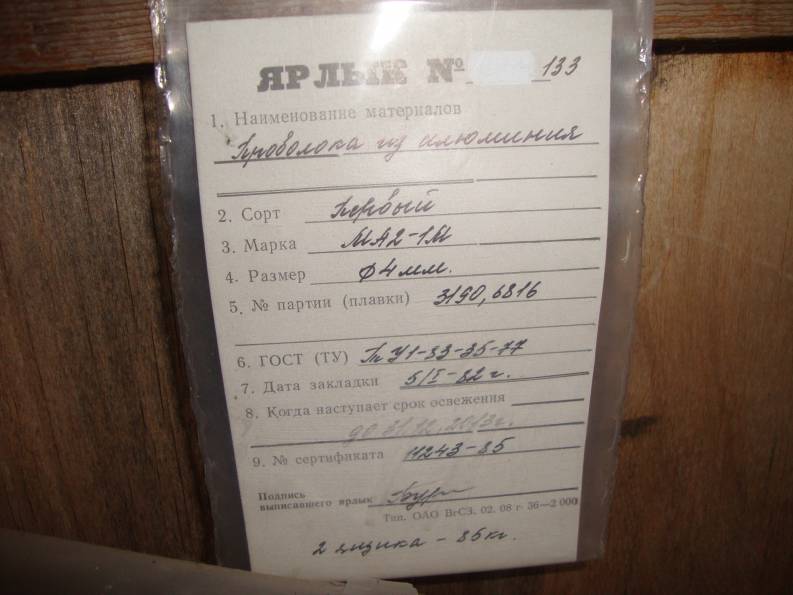 ЯРЛЫК № 133
1. Наименование материалов
Проволока из алюминия
2. Сорт Первый
3. Марка МА2-1М
4. Размер ф4мм.
5. № партии (плавки) 3190, 6816
6. ГОСТ (ТУ) ТУ1-93-35-77
7. Дата закладки 5/I-82г.
8. Когда наступает срок освежения
до 31.12.2013г.
9. № сертификата 11243-85
Подпись
выписавшего ярлык
Тип. ОАО ВгСЗ. 02. 08 г. 36—2 000
2 ящика - 85кг.